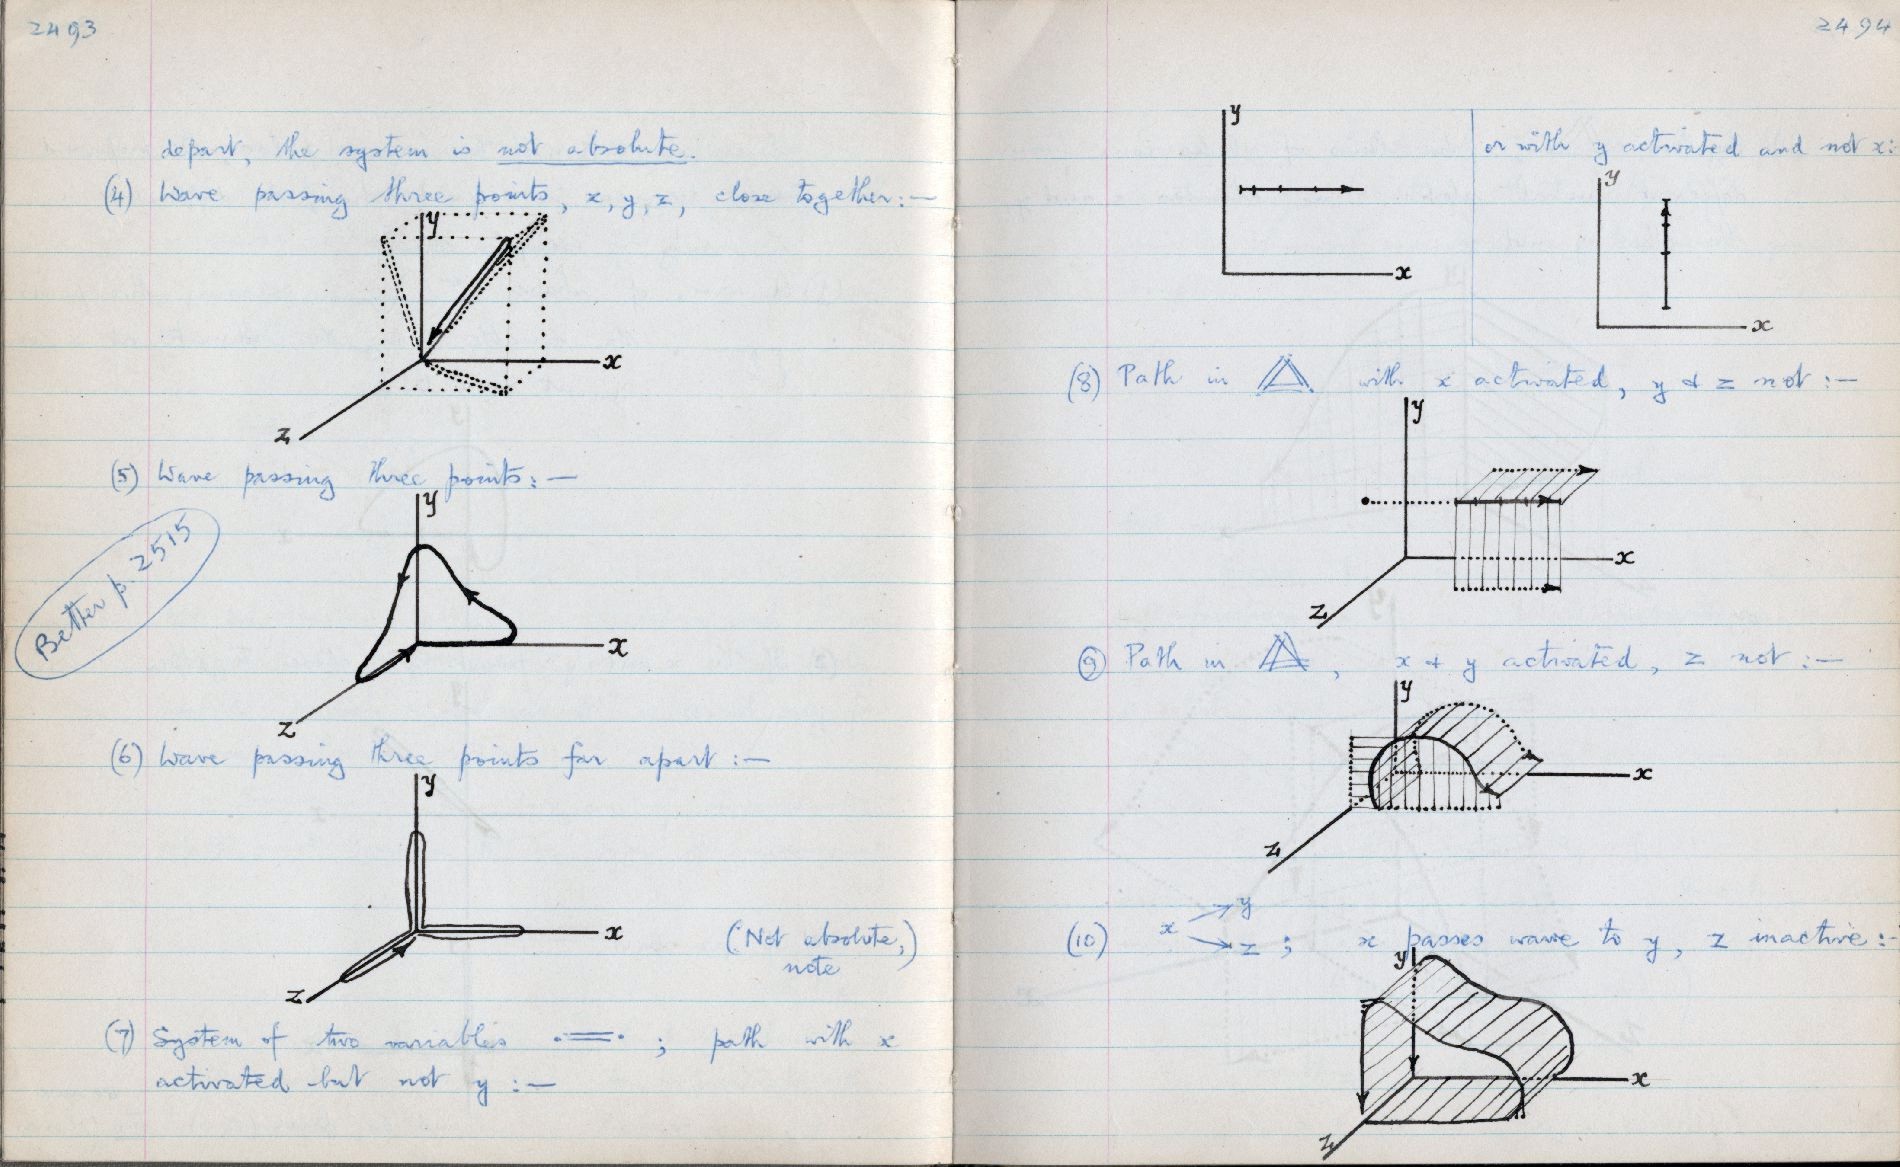 2493
depart, the system is not absolute.
(4) Wave passing three points, x, y, z, close together:—
y
x
z
(5) Wave passing three points:—
y
Better p. 2515
x
z
(6) Wave passing three points far apart :—
y
x
(Not absolute,)
note
z
(7) System of two variables ; path with x
activated but not y :—
2494
y
x
or with y activated and not x:
y
x
(8) Path in with x activated, y & z not :—
y
x
z
(9) Path in , x & y activated, z not :—
y
x
z
(10) x y z ; x passes wave to y, z inactive :-
y
x
z